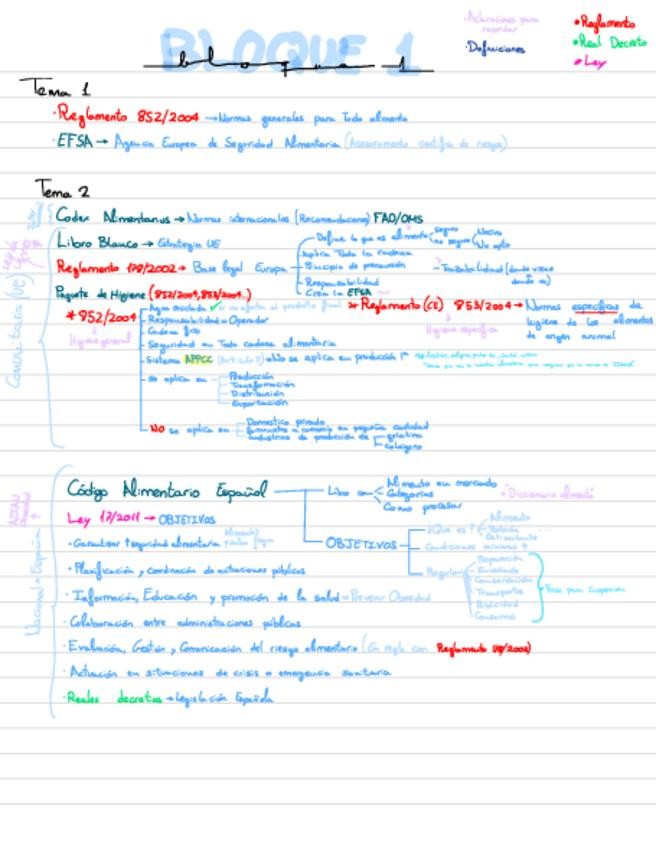 BLOQUE 1
bloque 1
· Aclaraciones para recordar
· Definiciones
· Reglamento
· Real Decreto
· Ley
Tema 1
· Reglamento 852/2004 → Normas generales para Todo alimento
· EFSA → Agencia Europea de Seguridad Alimentaria
Tema 2
Codex Alimentarius → Normas internacionales (Recomendaciones) FAO/OMS
Libro Blanco → Estrategia UE
Reglamento 178/2002 → Base legal Europa
Define lo que es alimento
seguro
no seguro
Nocivo
No apto
Aplica Toda la cadena
Principio de precaución
→ Trazabilidad (donde viene
donde va)
Responsabilidad
Crea la EFSA
Paquete de Higiene (852/2004, 853/2004..)
* 852/2004
Higiene general
Agua reciclada
Responsabilidad → Operador
Cadena frío
Seguridad en Toda cadena alimentaria
Sistema APPCC → No se aplica en producción 1ª
Se aplica en
Producción
Transformación
Distribución
Exportación
NO se aplica en
Domestico privado
Suministros a comercio en pequeña cantidad
Industrias de producción de
gelatina
Colágeno
* Reglamento (CE) 853/2004 → Normas específicas de
higiene de los alimentos
de origen animal
Higiene especifica
Comunitaria (UE)
Código Alimentario Español
Libro con
Alimento en mercado
Categorías
Como procesar
"Diccionario alimentos"
OBJETIVOS
¿Que es?
Alimento
Condiciones minimas?
Regular
Preparación
Envasado
Conservación
Transportes
Publicidad
Consumo
Base para Inspección
Ley 17/2011 → OBJETIVOS
· Garantizar ↑ seguridad alimentaria
· Planificación y coordinación de actuaciones públicas
· Información, Educación y promoción de la salud → Prevenir Obesidad
· Colaboración entre administraciones públicas
· Evaluación, Gestión y Comunicación del riesgo alimentario (En regla con Reglamento 178/2002)
· Actuación en situaciones de crisis o emergencia sanitaria
· Reales decretos → Legislación Española
Nacional - España